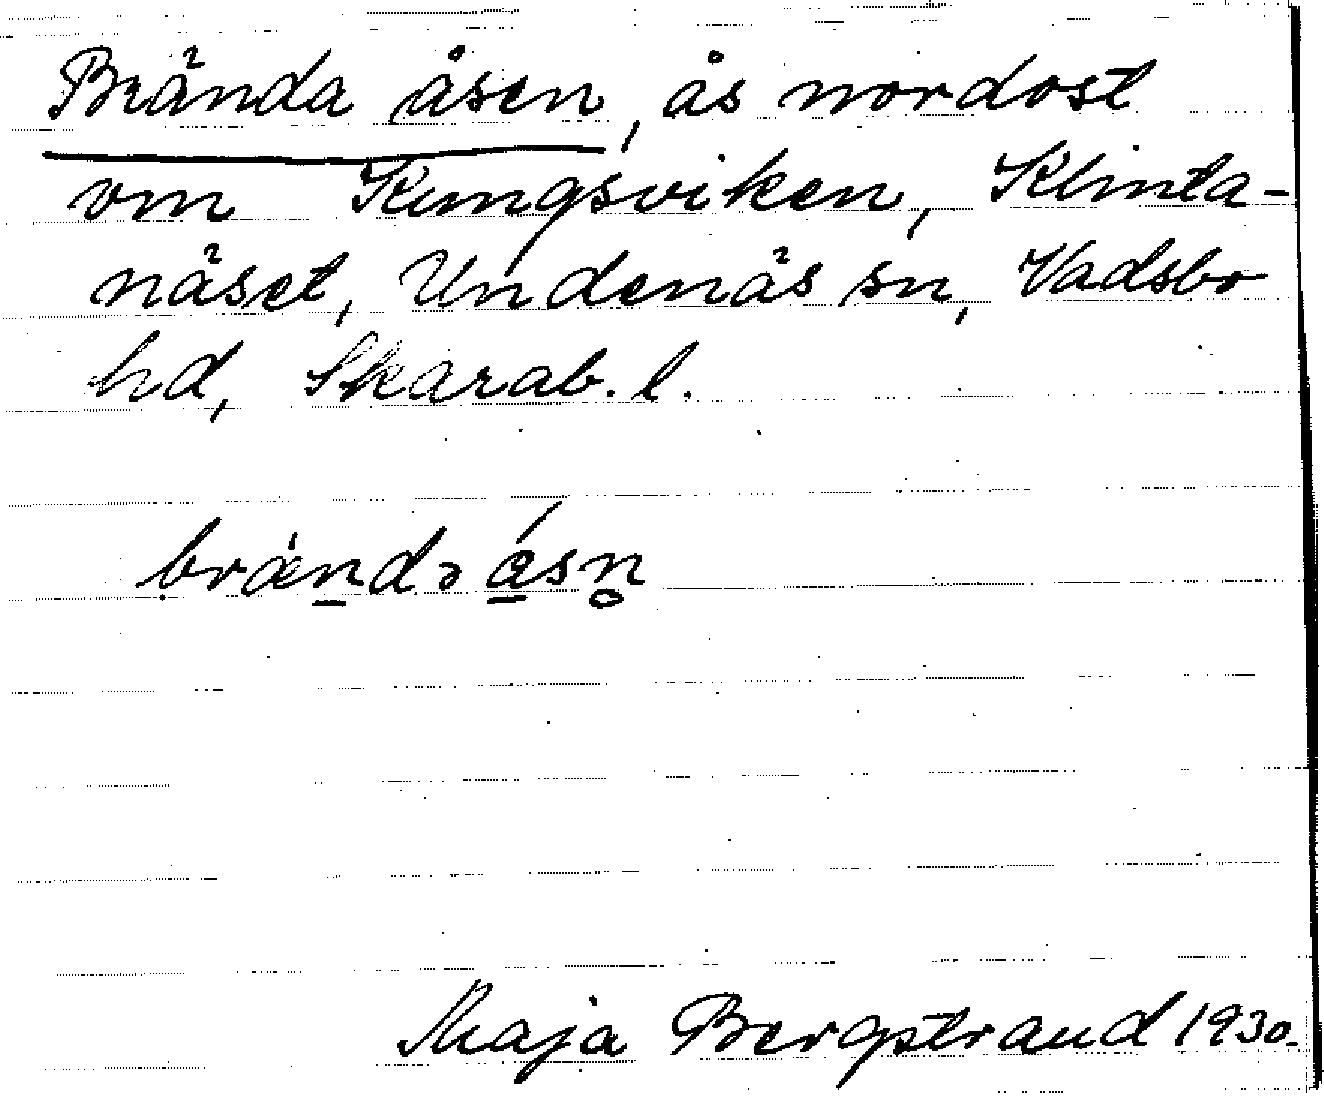 Brända åsen, ås nordost
om Kungsviken, Klinta-
näset, Undenäs sn, Vadsbo
hd, Skarab. l.
brän̲də á̲sn̥
Maja Bergstrand 1930.